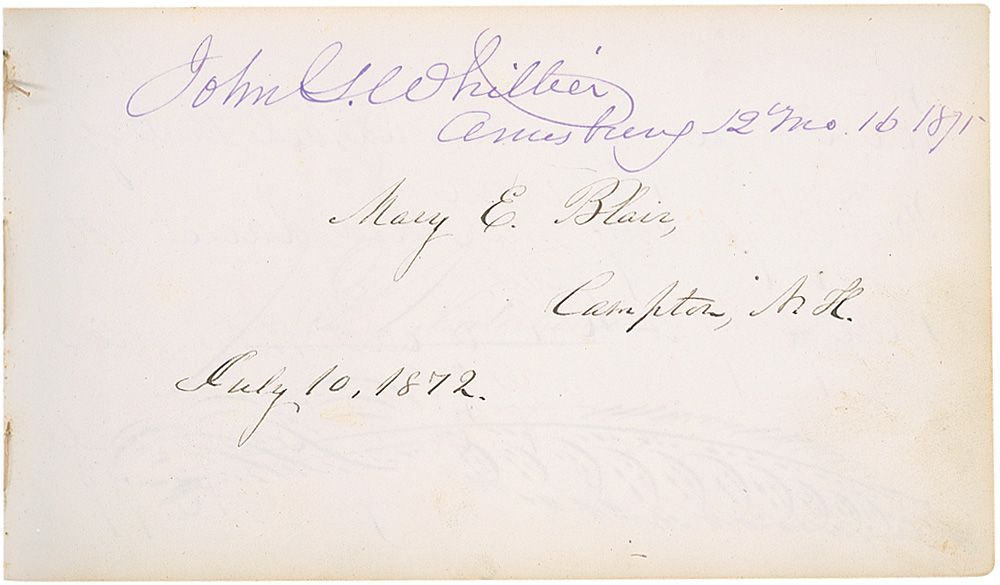 John G. Whittier
Amesbury 12th Mo. 16 1875
Mary E. Blair,
Campton, N.H.
July 10, 1872.